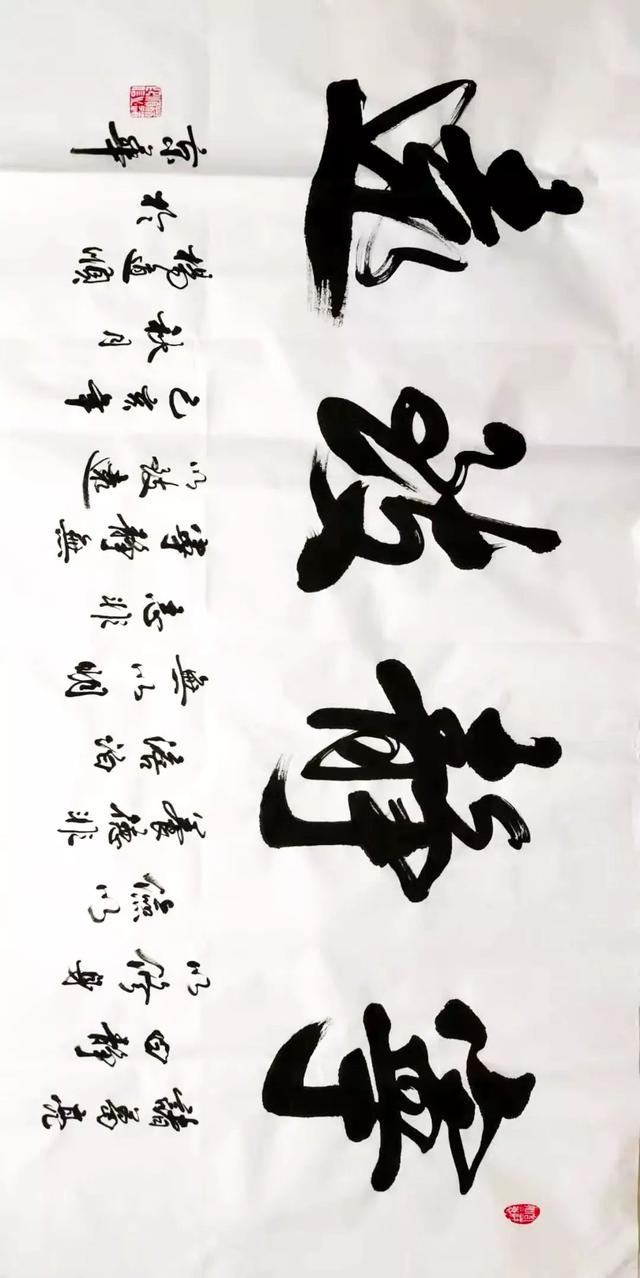 寧靜致遠
諸葛亮
曰靜
以修身
儉以
養德非
澹泊
無以明
志非
寧靜無
以致遠
己亥年
秋月
楊道順
於
京華